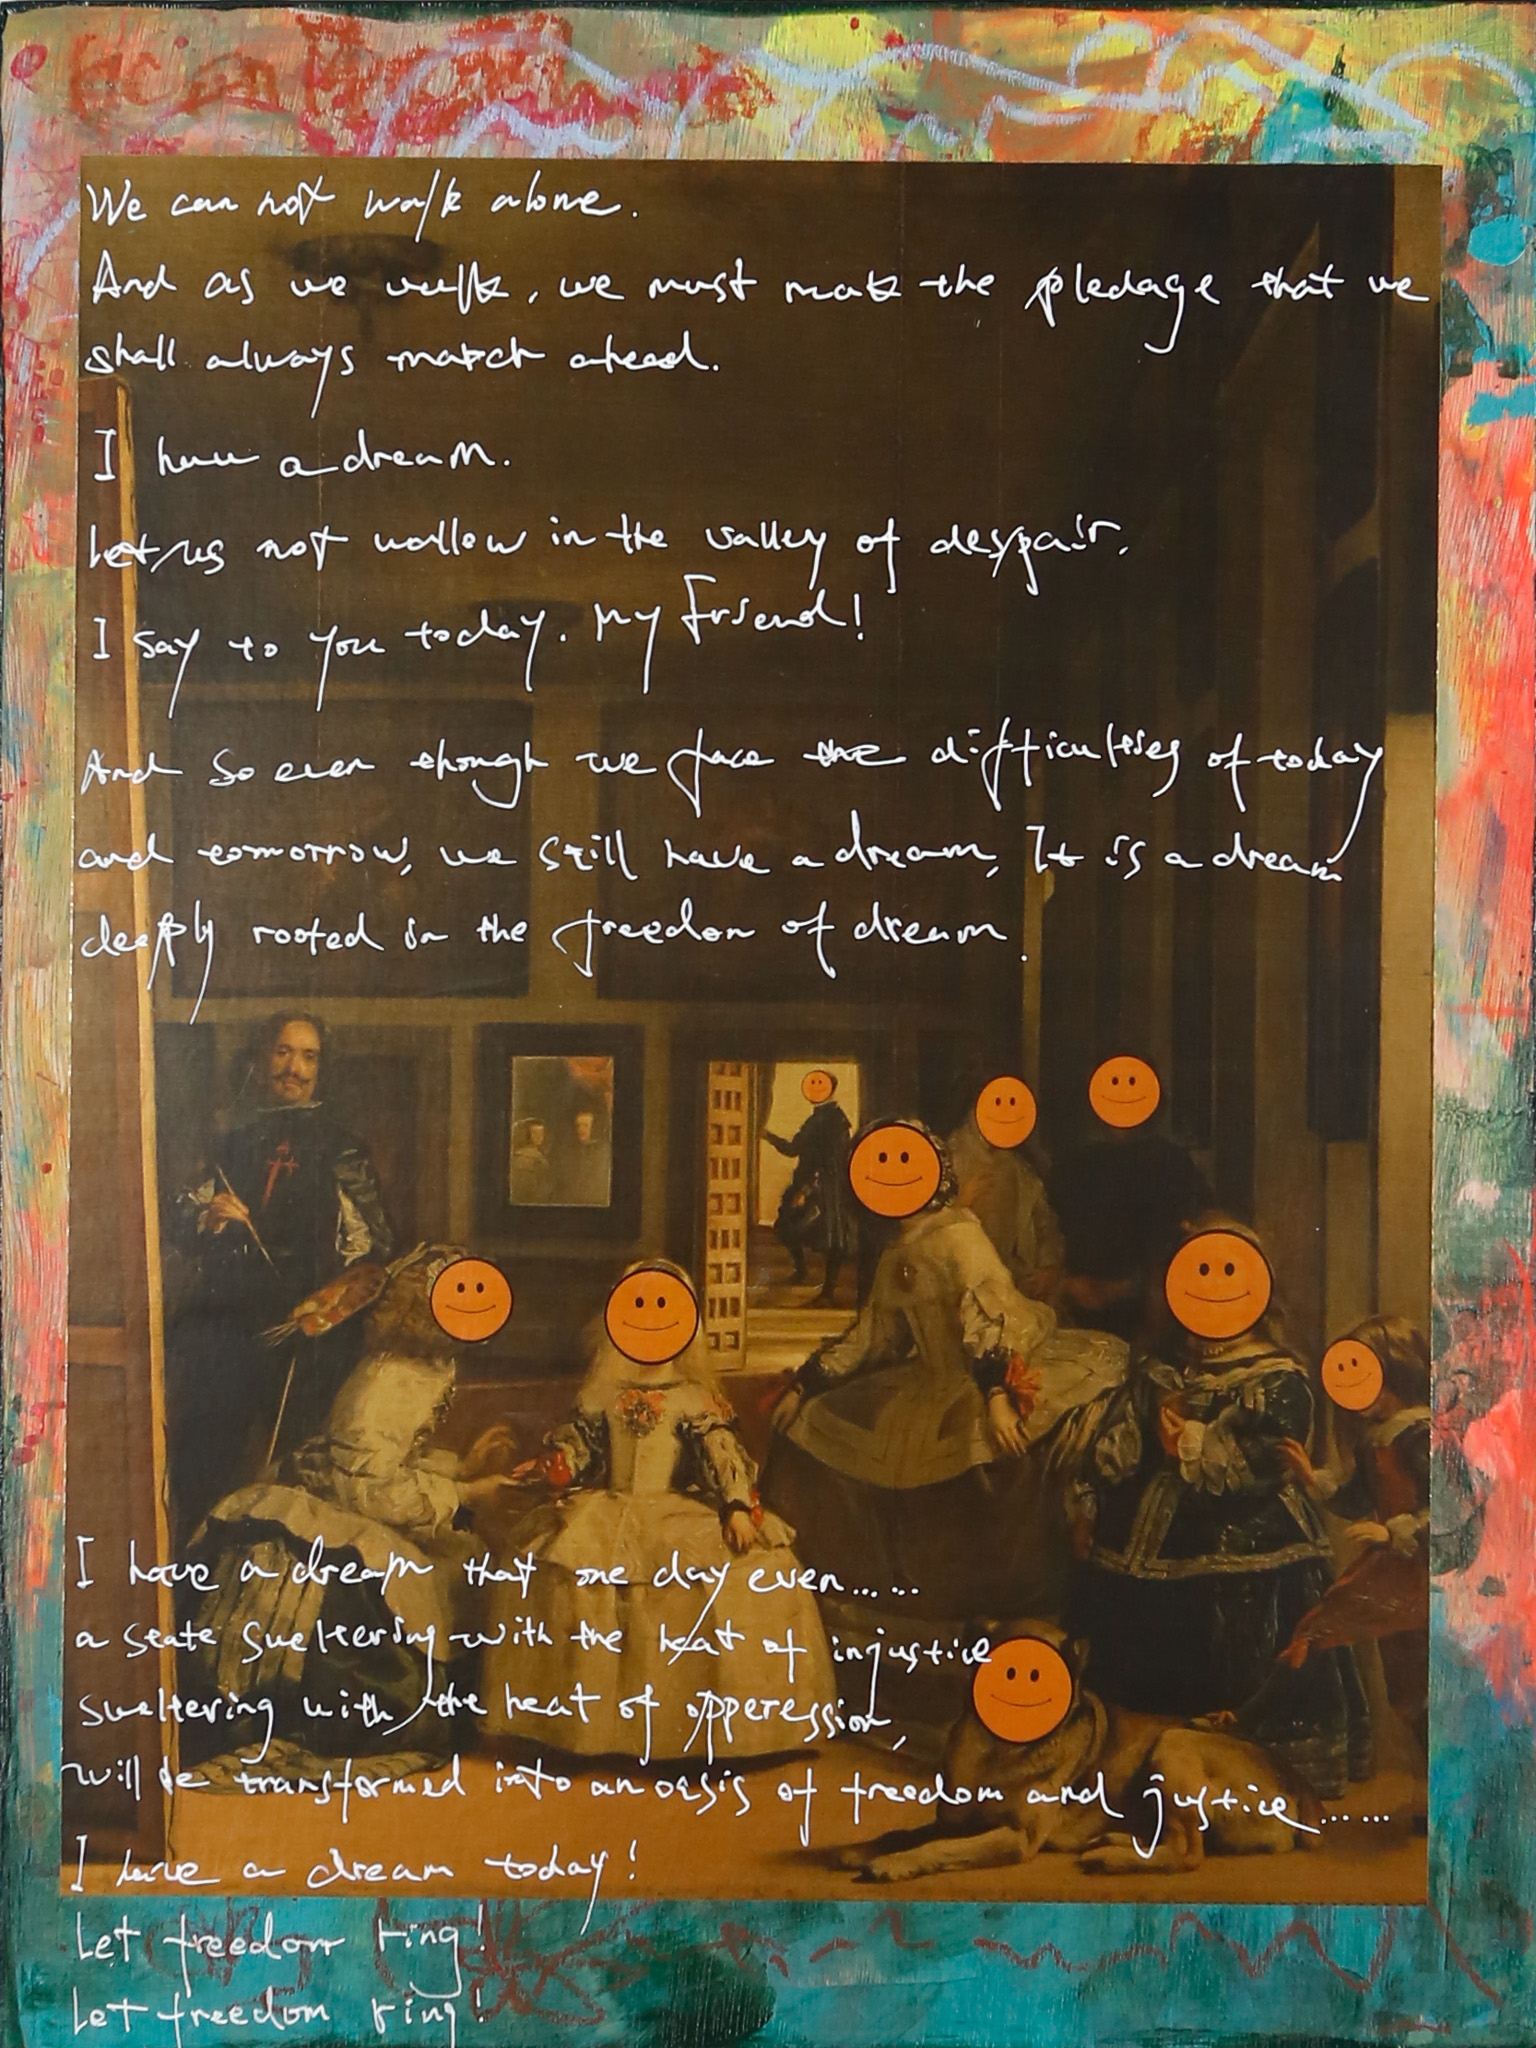 We can not walk alone.
And as we walk, we must make the pledage that we
shall always march ahead.
I have a dream.
Let us not wallow in the valley of despair.
I say to you today. My Friend!
And so even though we face the difficulties of today
and tomorrow, we still have a dream, It is a dream
deeply rooted in the freedom of dream.
I have a dream that one day even......
a state sweltering with the heat of injustice
sweltering with the heat of opperession,
will be transformed into an oasis of freedom and justice......
I have a dream today!
Let freedom ring!
Let freedom ring!